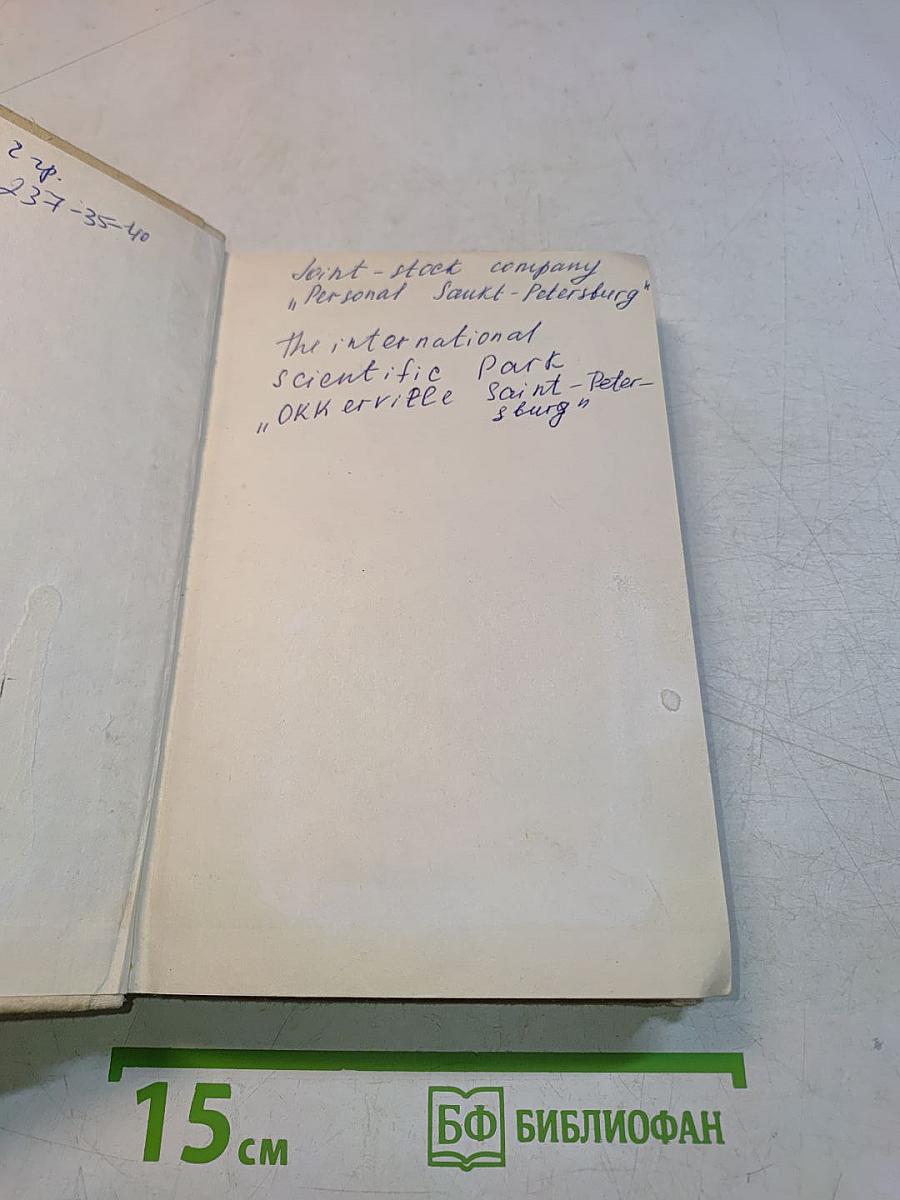 2 гр.
237-35-40
Joint-stock company
„Personal Sankt-Petersburg"
the international
scientific Park
„OKKerville Saint-Peter-
sburg"
15 см
БФ БИБЛИОФАН